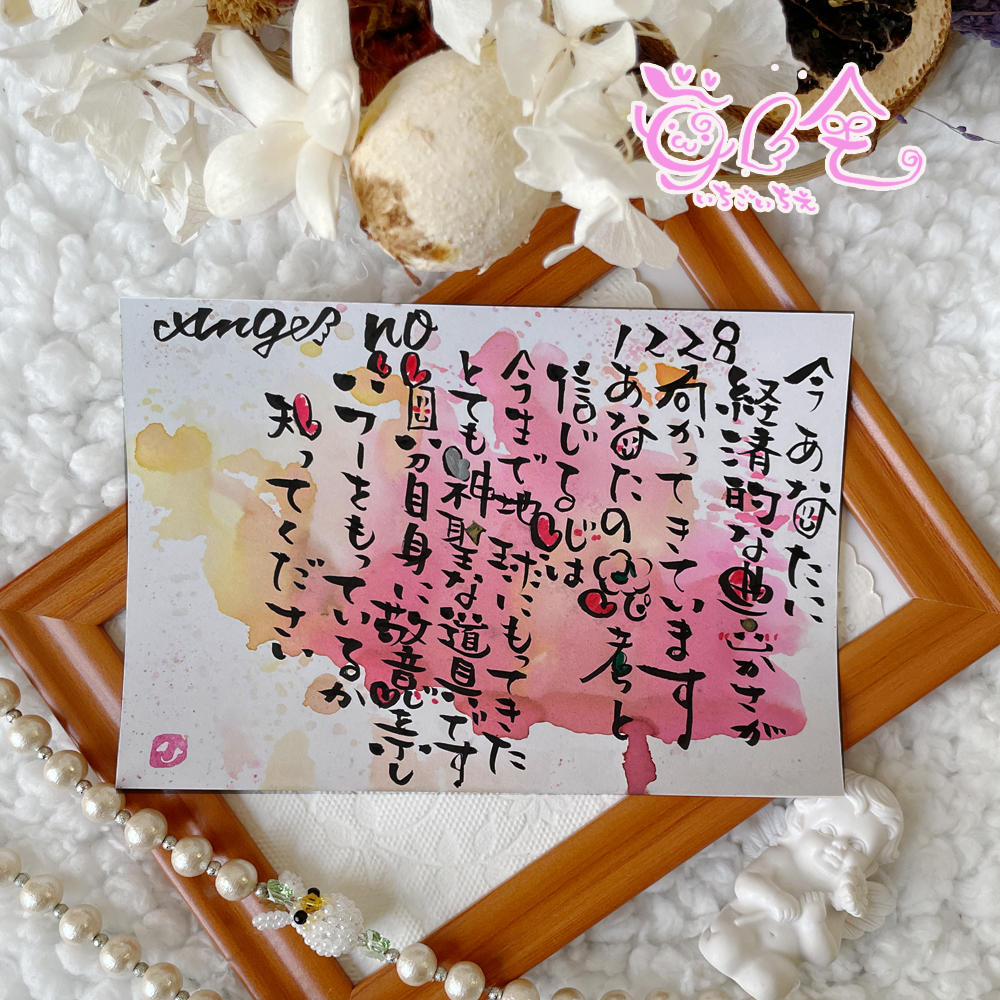 Angel no
1228
今あなたに
経済的な豊かさが
向かってきています
あなたの思考と
信じる心は
今まで地球にもってきた
とても神聖な道具です
自分自身に敬意を示し
パワーをもっているか
知ってください
いちごいちえ